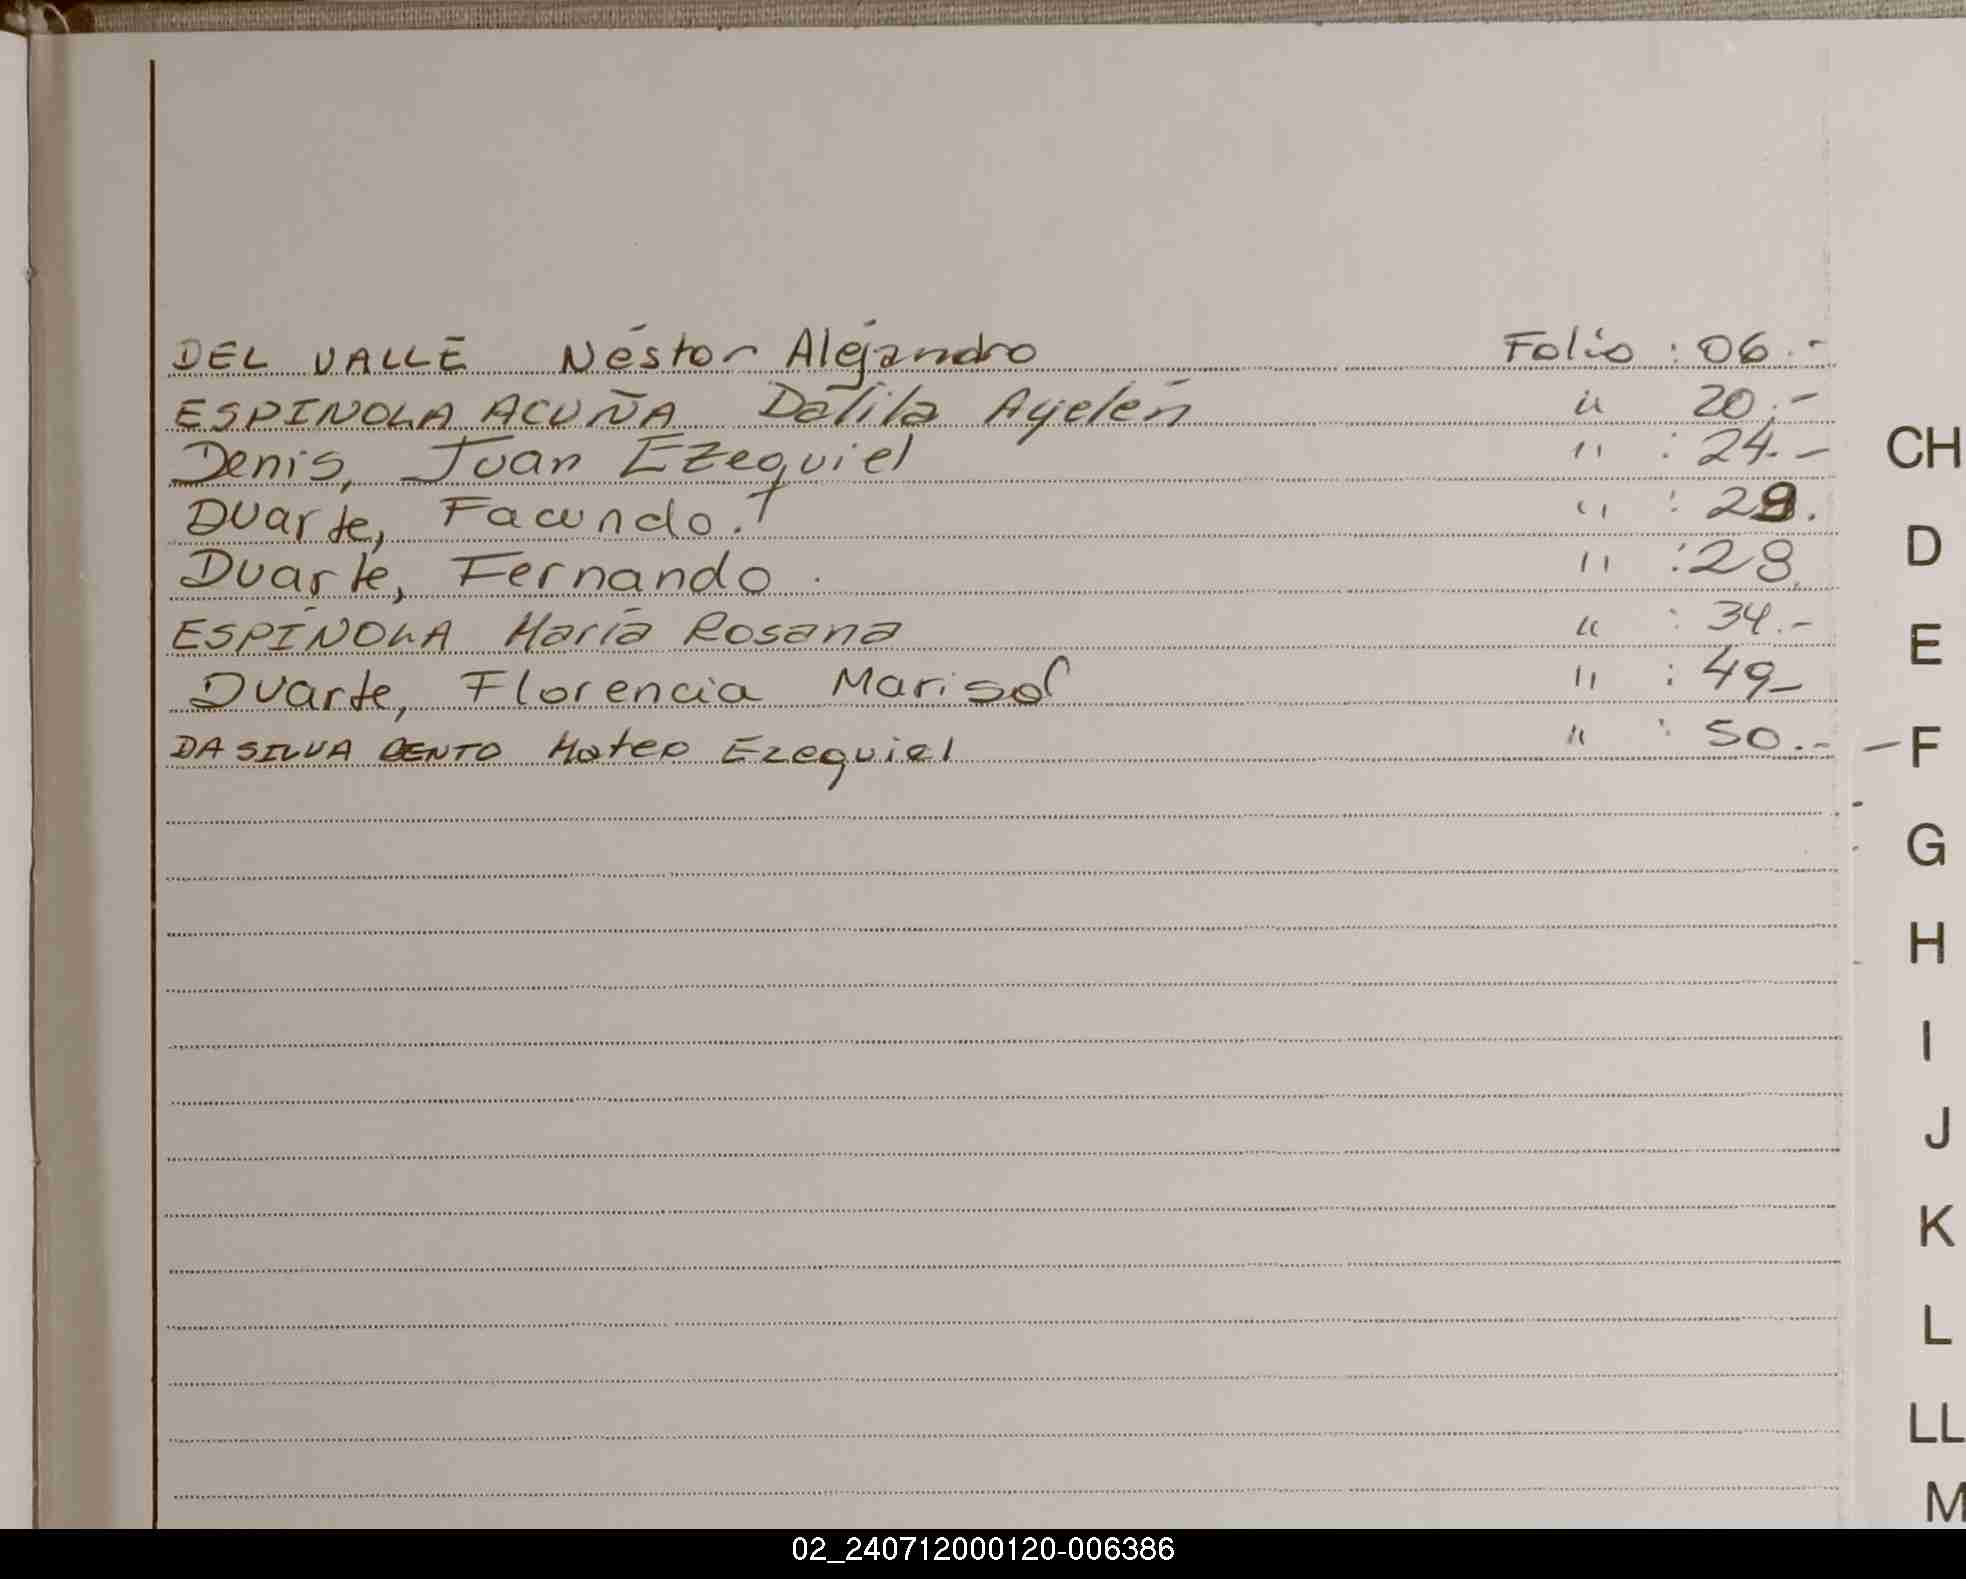 DEL VALLE Néstor Aléjandro Folio : 06.-
ESPINOLA ACUÑA Dalila Ayelén " 20.-
Denis, Juan Ezequiel " : 24.-
Duarte, Facundo. " :
Duarte, Fernando. " : 28.
ESPÍNOLA María Rosana " : 34.-
Duarte, Florencia Marisol " : 49-
DA SILVA BENTO Mateo Ezequiel " : 50.-
CH
D
E
F
G
H
I
J
K
L
LL
M
02_240712000120-006386